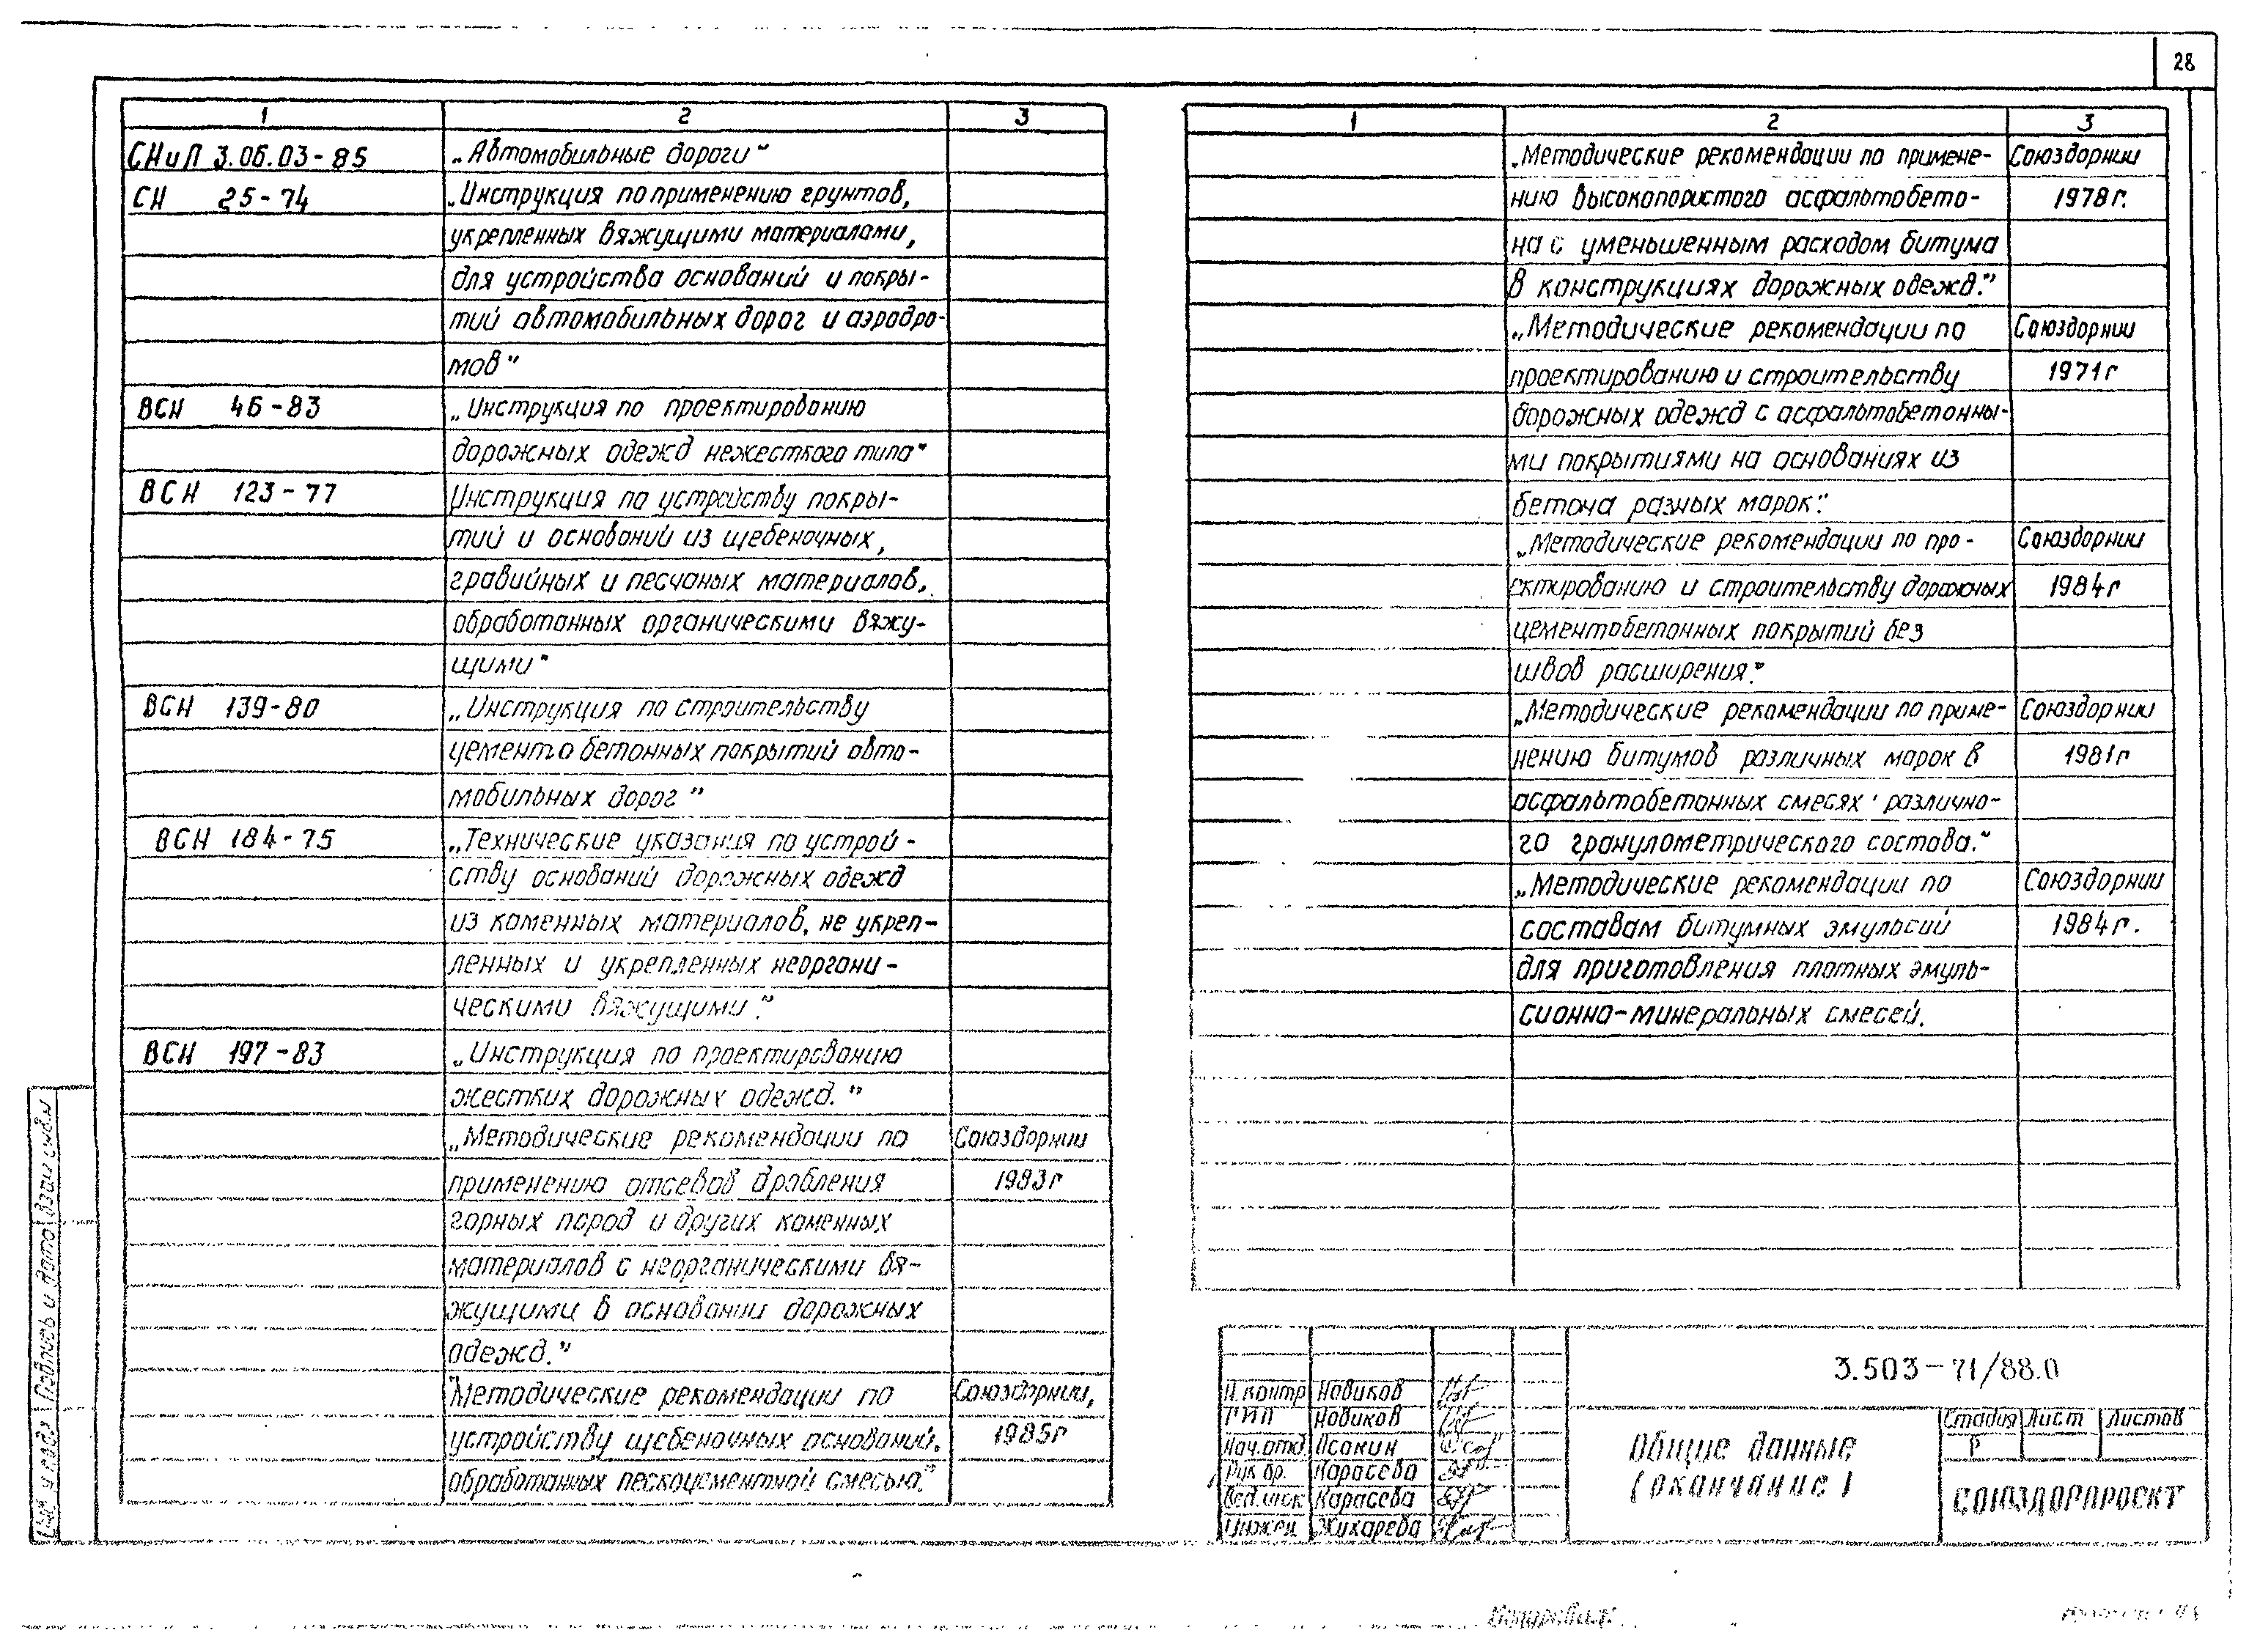 28
1 2 3
СНиП 3.06.03-85 „Автомобильные дороги“
СН 25-74 „Инструкция по применению грунтов,
укрепленных вяжущими материалами,
для устройства оснований и покры-
тий автомобильных дорог и аэродро-
мов“
ВСН 46-83 „Инструкция по проектированию
дорожных одежд нежесткого типа“
ВСН 123-77 Инструкция по устройству покры-
тий и оснований из щебеночных,
гравийных и песчаных материалов,
обработанных органическими вяжу-
щими“
ВСН 139-80 „Инструкция по строительству
цементобетонных покрытий авто-
мобильных дорог“
ВСН 184-75 „Технические указания по устрой-
ству оснований дорожных одежд
из каменных материалов, не укреп-
ленных и укрепленных неоргани-
ческими вяжущими“.
ВСН 197-83 „Инструкция по проектированию
жестких дорожных одежд.“
„Методические рекомендации по Союздорнии
применению отсевов дробления 1983г
горных пород и других каменных
материалов с неорганическими вя-
жущими в основании дорожных
одежд.“
"Методические рекомендации по Союздорнии,
устройству щебеночных оснований, 1985г
обработанных пескоцементной смесью.“
1 2 3
„Методические рекомендации по примене- Союздорнии
нию высокопористого асфальтобето- 1978г.
на с уменьшенным расходом битума
в конструкциях дорожных одежд.“
„Методические рекомендации по Союздорнии
проектированию и строительству 1971г
дорожных одежд с асфальтобетонны-
ми покрытиями на основаниях из
бетона разных марок“.
„Методические рекомендации по про- Союздорнии
ектированию и строительству дорожных 1984г
цементобетонных покрытий без
швов расширения.“
„Методические рекомендации по приме- Союздорнии
нению битумов различных марок в 1981г
асфальтобетонных смесях различно-
го гранулометрического состава.“
„Методические рекомендации по Союздорнии
составам битумных эмульсий 1984г.
для приготовления плотных эмуль-
сионно-минеральных смесей.
3.503-71/88.0
Н.контр Новиков
ГИП Новиков
Нач.отд Осокин
Рук бр. Карасева
Вед.инж Карасева
Инжен Жихарева
Общие данные
(окончание)
Стадия Лист Листов
Р
СОЮЗДОРПРОЕКТ
Подпись и дата Взам инв.№
Копировал: